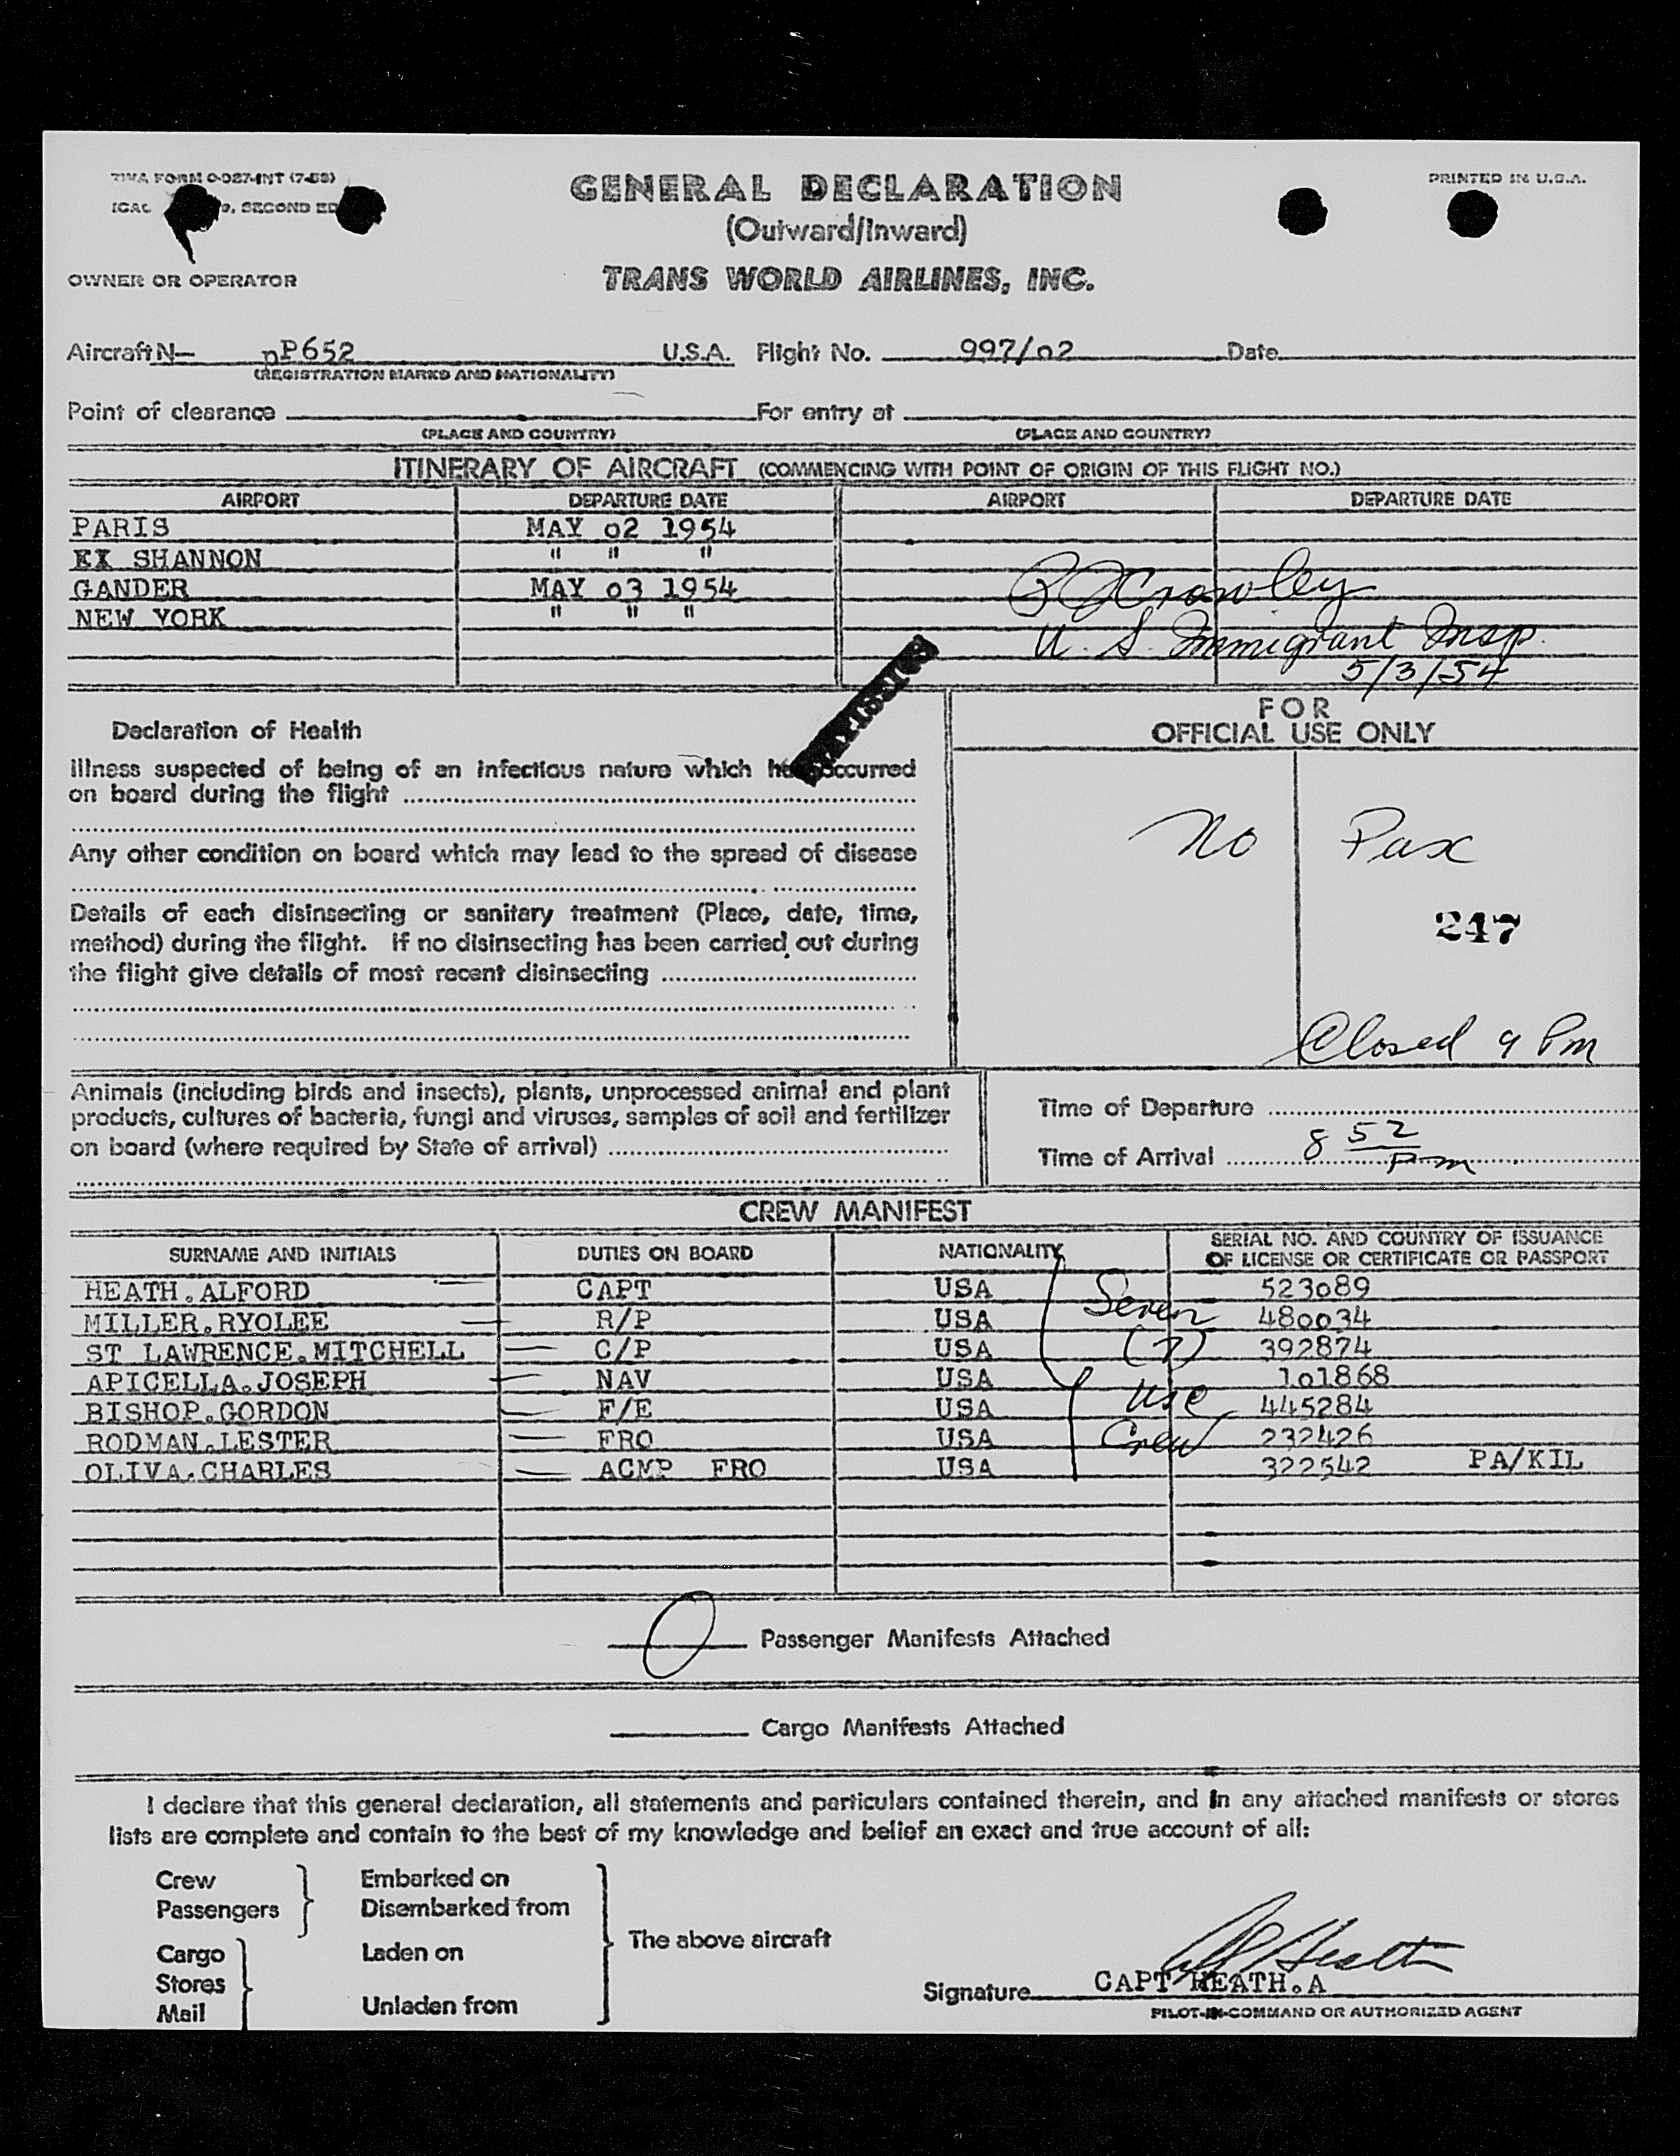 TWA FORM O-027-INT (7-53)
ICAO 9, SECOND ED
PRINTED IN U.S.A.
GENERAL DECLARATION
(Outward/Inward)
OWNER OR OPERATOR
TRANS WORLD AIRLINES, INC.
Aircraft N— nP652 U.S.A. Flight No. 997/02 Date
(REGISTRATION MARKS AND NATIONALITY)
Point of clearance For entry at
(PLACE AND COUNTRY) (PLACE AND COUNTRY)
ITINERARY OF AIRCRAFT (COMMENCING WITH POINT OF ORIGIN OF THIS FLIGHT NO.)
AIRPORT DEPARTURE DATE AIRPORT DEPARTURE DATE
PARIS MAY 02 1954
SHANNON " " "
GANDER MAY 03 1954 Crowley
NEW YORK " " "
U. S. Immigrant Insp.
5/3/54
FOR
OFFICIAL USE ONLY
Declaration of Health
Illness suspected of being of an infectious nature which has occurred
on board during the flight
Any other condition on board which may lead to the spread of disease
Details of each disinsecting or sanitary treatment (Place, date, time,
method) during the flight. If no disinsecting has been carried out during
the flight give details of most recent disinsecting
No Pax
247
Closed 9 Pm
Animals (including birds and insects), plants, unprocessed animal and plant
products, cultures of bacteria, fungi and viruses, samples of soil and fertilizer
on board (where required by State of arrival)
Time of Departure
Time of Arrival 8 52 Pm
CREW MANIFEST
SURNAME AND INITIALS DUTIES ON BOARD NATIONALITY SERIAL NO. AND COUNTRY OF ISSUANCE
OF LICENSE OR CERTIFICATE OR PASSPORT
HEATH.ALFORD CAPT USA 523089
MILLER.RYOLEE R/P USA Seven 480034
ST LAWRENCE.MITCHELL C/P USA (7) 392874
APICELLA.JOSEPH NAV USA 101868
BISHOP.GORDON F/E USA usc 445284
RODMAN.LESTER FRO USA Crew 232426
OLIVA.CHARLES ACMP FRO USA 322542 PA/KIL
0 Passenger Manifests Attached
Cargo Manifests Attached
I declare that this general declaration, all statements and particulars contained therein, and in any attached manifests or stores
lists are complete and contain to the best of my knowledge and belief an exact and true account of all:
Crew Embarked on
Passengers Disembarked from
The above aircraft
Cargo Laden on
Stores
Mail Unladen from
Heath
Signature CAPT HEATH.A
PILOT-IN-COMMAND OR AUTHORIZED AGENT